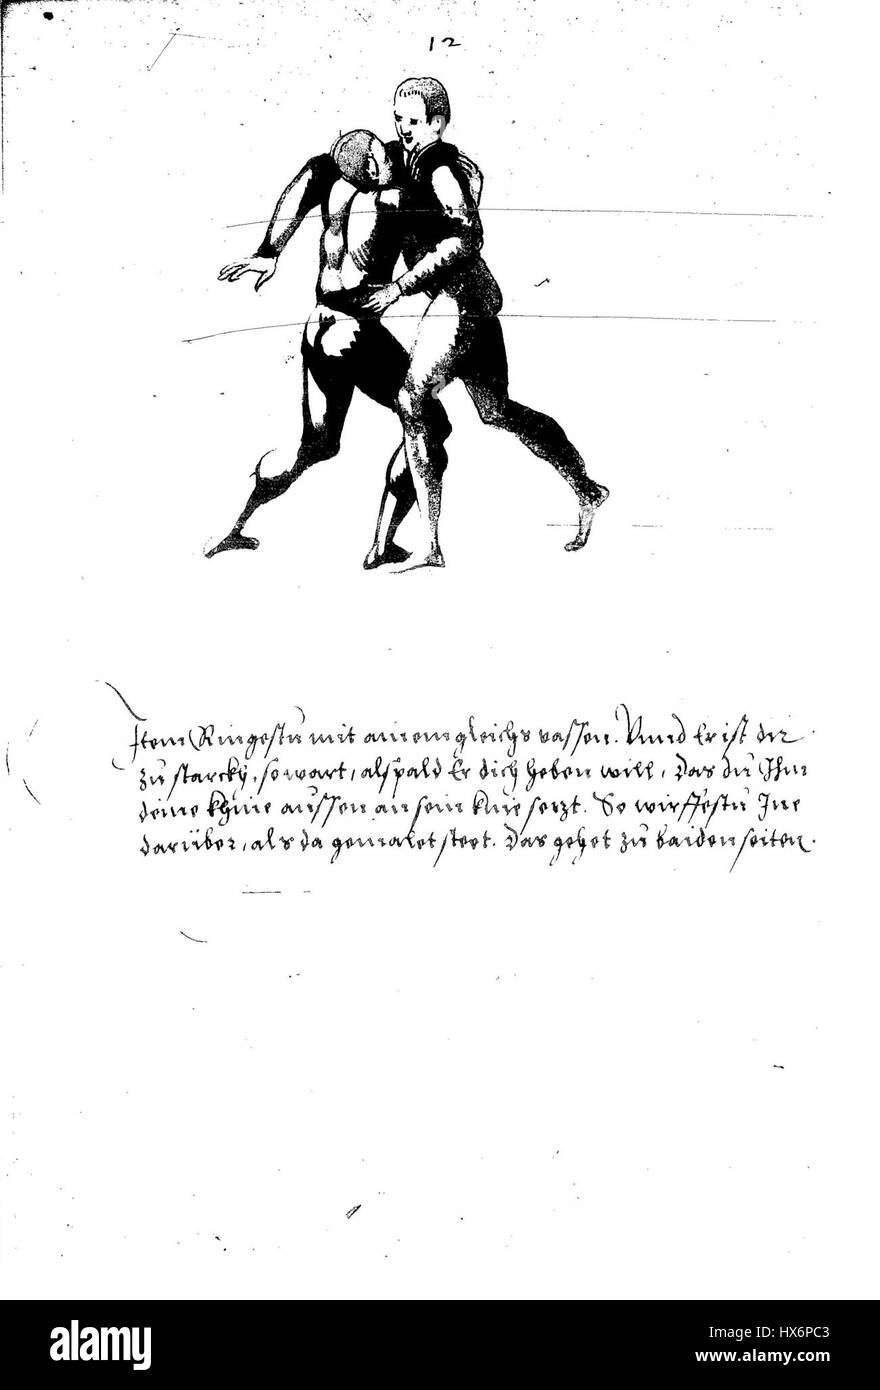 12
Item Ringestu mit ainem gleichs vassen. Vnnd Er ist dir
zu starckh, so wart, alspald Er dich heben will, Das du Ihm
deine khnie aussen an sein knie setzt. So wirffestu Ine
darüber, als da gemalet steet. Das gehet zu baiden seiten.
alamy
Image ID: HX6PC3
www.alamy.com